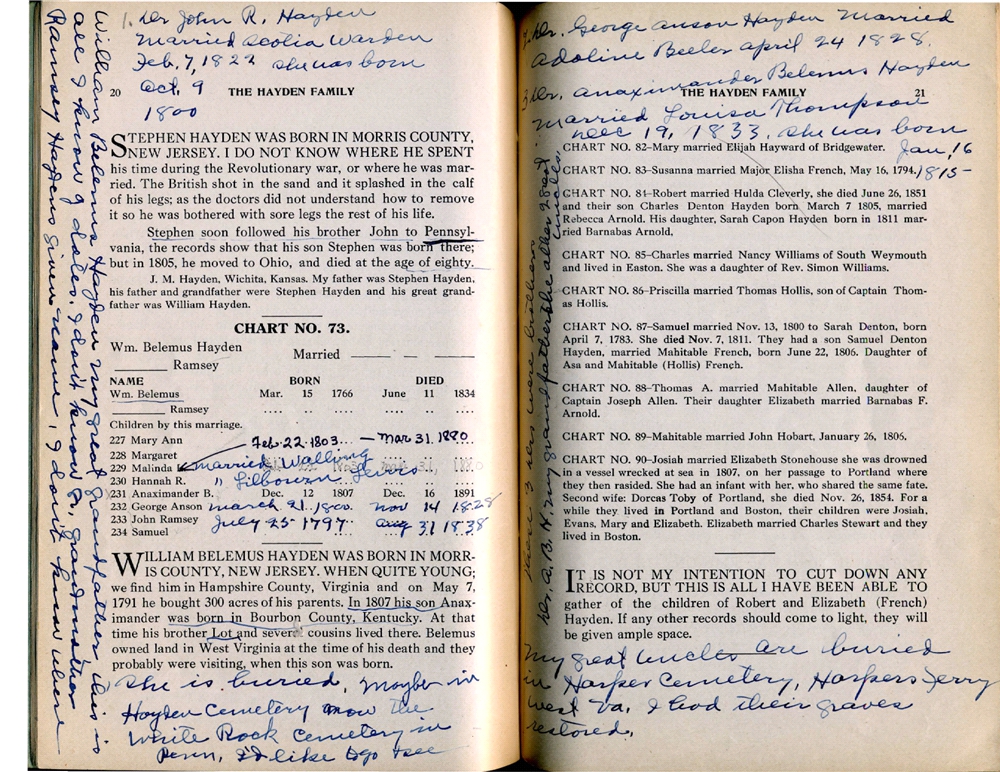 1. Dr John R. Hayden
Married Scotia Warden
Feb. 7, 1822 she was born
Oct. 9
1800
20 THE HAYDEN FAMILY
STEPHEN HAYDEN WAS BORN IN MORRIS COUNTY,
NEW JERSEY. I DO NOT KNOW WHERE HE SPENT
his time during the Revolutionary war, or where he was mar-
ried. The British shot in the sand and it splashed in the calf
of his legs; as the doctors did not understand how to remove
it so he was bothered with sore legs the rest of his life.
Stephen soon followed his brother John to Pennsyl-
vania, the records show that his son Stephen was born there;
but in 1805, he moved to Ohio, and died at the age of eighty.
J. M. Hayden, Wichita, Kansas. My father was Stephen Hayden,
his father and grandfather were Stephen Hayden and his great grand-
father was William Hayden.
CHART NO. 73.
Wm. Belemus Hayden
Married — — —
Ramsey
NAME BORN DIED
Wm. Belemus Mar. 15 1766 June 11 1834
Ramsey .... .. .... .... .. ....
Children by this marriage.
227 Mary Ann Feb. 22. 1803... — Mar 31. 1880
228 Margaret
229 Malinda married Walling
230 Hannah R. " Lilbourn Lewis
231 Anaximander B. Dec. 12 1807 Dec. 16 1891
232 George Anson march 21. 1800. nov 14 1828
233 John Ramsey July 25 - 1797. aug 31 1838
234 Samuel
WILLIAM BELEMUS HAYDEN WAS BORN IN MORR-
IS COUNTY, NEW JERSEY. WHEN QUITE YOUNG;
we find him in Hampshire County, Virginia and on May 7,
1791 he bought 300 acres of his parents. In 1807 his son Anax-
imander was born in Bourbon County, Kentucky. At that
time his brother Lot and several cousins lived there. Belemus
owned land in West Virginia at the time of his death and they
probably were visiting, when this son was born.
She is buried, maybe in
Hayden Cemetery now the
White Rock Cemetery in
Penn, I'd like to go & see
William Belemus Hayden my great grandfather this is
all I know of dates. I don't know Gr. grandmother
Ramsey Haydens given name, I don't know where
2. Dr. George Anson Hayden Married
Adoline Beeler April 24 1828.
3. Dr. Anaximander Belemus Hayden
married Louisa Thompson
Dec 19, 1833. she was born
Jan, 16
1815-
THE HAYDEN FAMILY 21
CHART NO. 82—Mary married Elijah Hayward of Bridgewater.
CHART NO. 83—Susanna married Major Elisha French, May 16, 1794.
CHART NO. 84—Robert married Hulda Cleverly, she died June 26, 1851
and their son Charles Denton Hayden born March 7 1805, married
Rebecca Arnold. His daughter, Sarah Capon Hayden born in 1811 mar-
ried Barnabas Arnold.
CHART NO. 85—Charles married Nancy Williams of South Weymouth
and lived in Easton. She was a daughter of Rev. Simon Williams.
CHART NO. 86—Priscilla married Thomas Hollis, son of Captain Thom-
as Hollis.
CHART NO. 87—Samuel married Nov. 13, 1800 to Sarah Denton, born
April 7, 1783. She died Nov. 7, 1811. They had a son Samuel Denton
Hayden, married Mahitable French, born June 22, 1806. Daughter of
Asa and Mahitable (Hollis) French.
CHART NO. 88—Thomas A. married Mahitable Allen, daughter of
Captain Joseph Allen. Their daughter Elizabeth married Barnabas F.
Arnold.
CHART NO. 89—Mahitable married John Hobart, January 26, 1806.
CHART NO. 90—Josiah married Elizabeth Stonehouse she was drowned
in a vessel wrecked at sea in 1807, on her passage to Portland where
they then rasided. She had an infant with her, who shared the same fate.
Second wife: Dorcas Toby of Portland, she died Nov. 26, 1854. For a
while they lived in Portland and Boston, their children were Josiah,
Evans, Mary and Elizabeth. Elizabeth married Charles Stewart and they
lived in Boston.
IT IS NOT MY INTENTION TO CUT DOWN ANY
RECORD, BUT THIS IS ALL I HAVE BEEN ABLE TO
gather of the children of Robert and Elizabeth (French)
Hayden. If any other records should come to light, they will
be given ample space.
My great uncles are buried
in Harper Cemetery, Harpers Ferry
West Va. I had their graves
restored.
These 3 Drs were brothers
Dr. A. B. H. my grandfather the other 2 great
uncles.